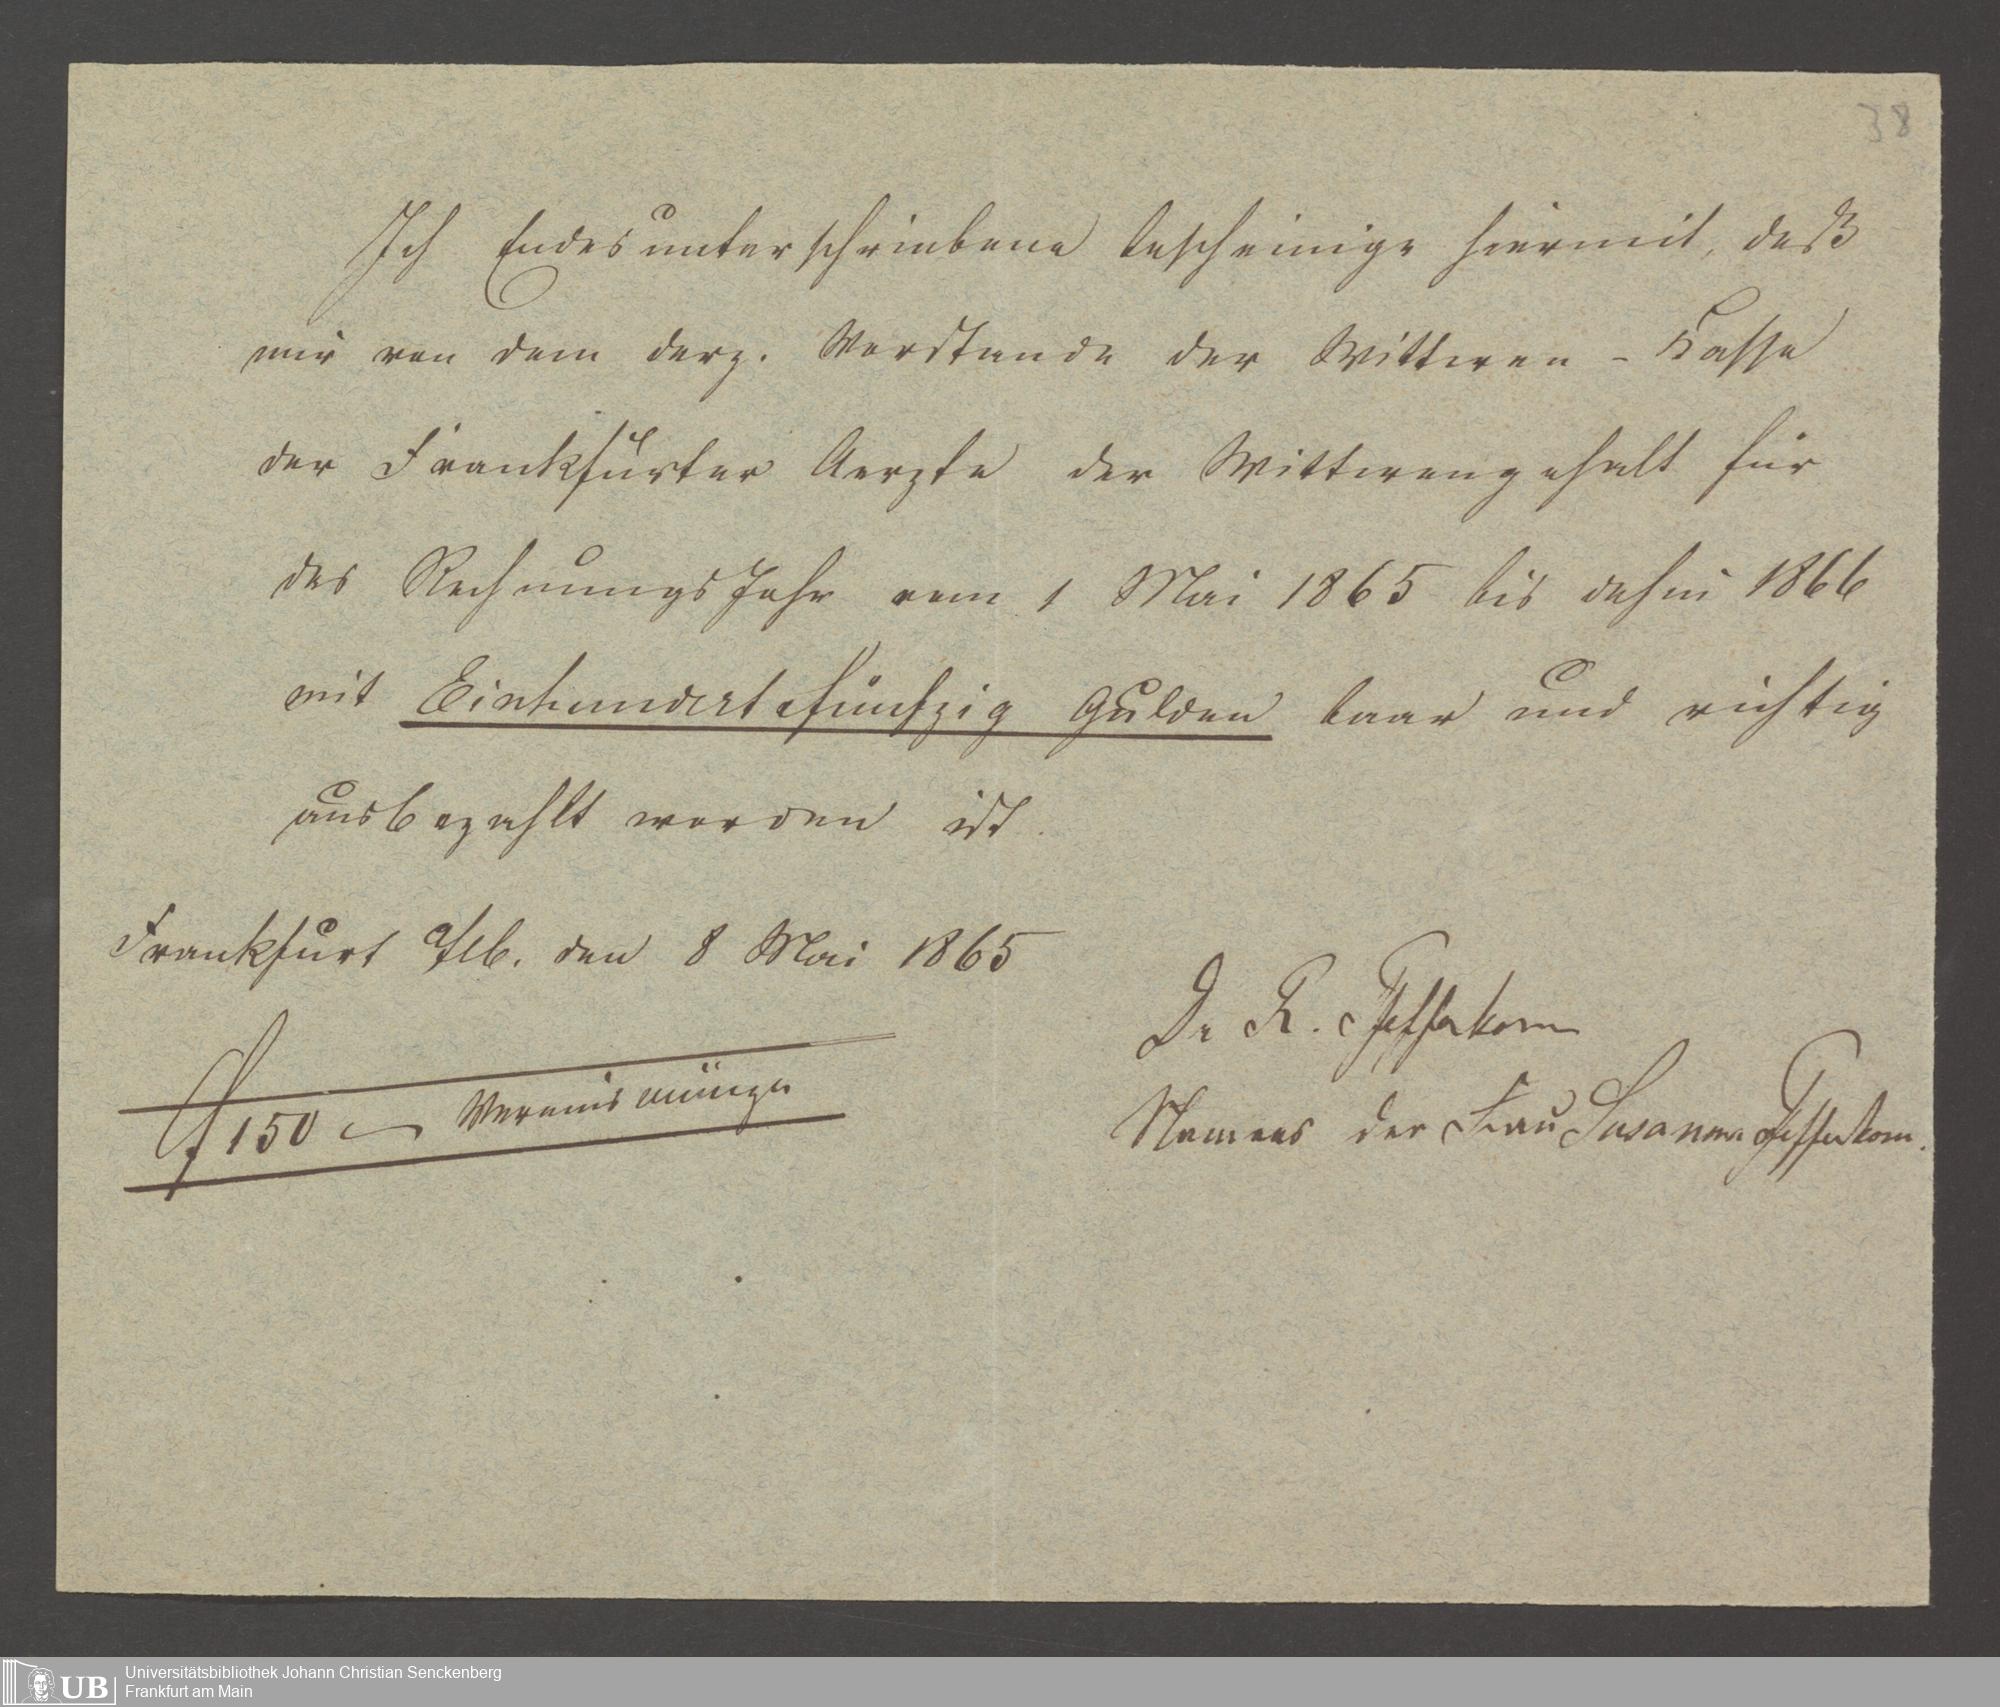 38
Ich Endesunterschriebene bescheinige hiermit, daß
mir von dem derz. Vorstande der Wittwen-Kasse
der Frankfurter Aerzte der Wittwengehalt für
das RechnungsJahr vom 1 Mai 1865 bis dahin 1866
mit Einhundert & fünfzig Gulden baar und richtig
ausbezahlt worden ist.
Frankfurt a/M. den 8 Mai 1865
Dr R. Pfefferkorn
f 150 — Vereinsmünze
Namens der Frau Susanna Pfefferkorn.
UB Universitätsbibliothek Johann Christian Senckenberg
Frankfurt am Main